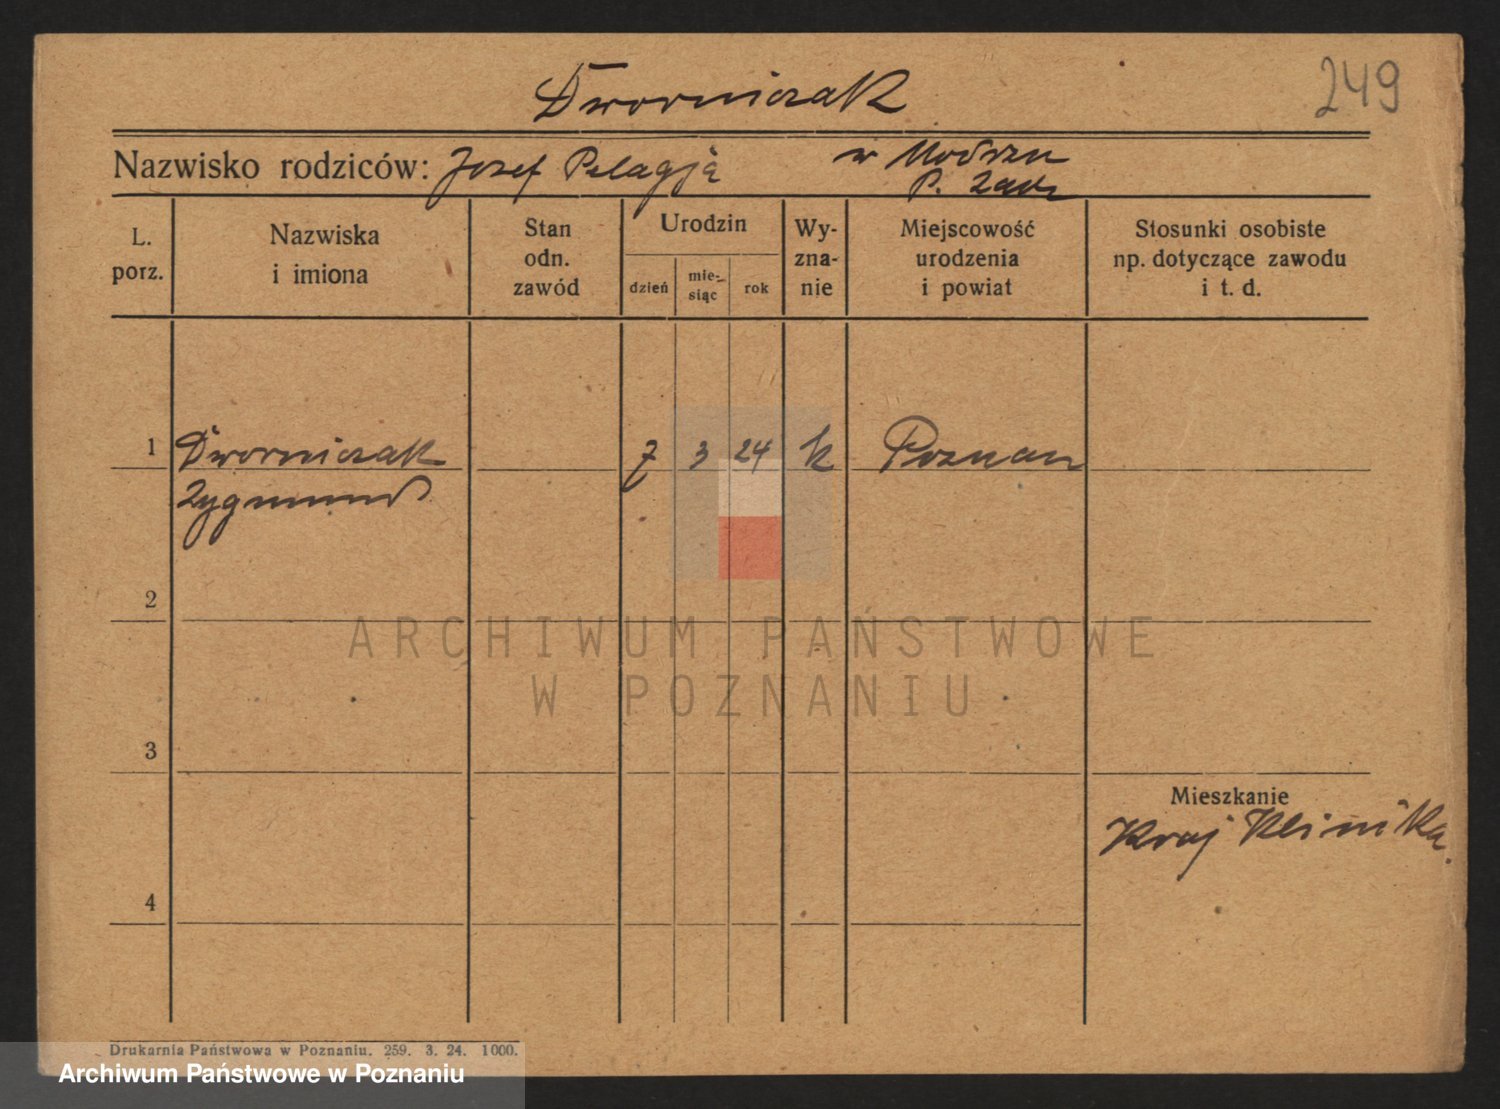 249
Dworniczak
Nazwisko rodziców: Josef Pelagja w Modrzu
P.
L. porz.
Nazwiska i imiona
Stan odn. zawód
Urodzin
dzień
mie-siąc
rok
Wy-zna-nie
Miejscowość urodzenia i powiat
Stosunki osobiste np. dotyczące zawodu i t. d.
1 Dworniczak 7 3 24 k Poznan
Zygmund
2
ARCHIWUM PAŃSTWOWE
W POZNANIU
3
Mieszkanie
Kraj Klinika.
4
Drukarnia Państwowa w Poznaniu. 259. 3. 24. 1000.
Archiwum Państwowe w Poznaniu